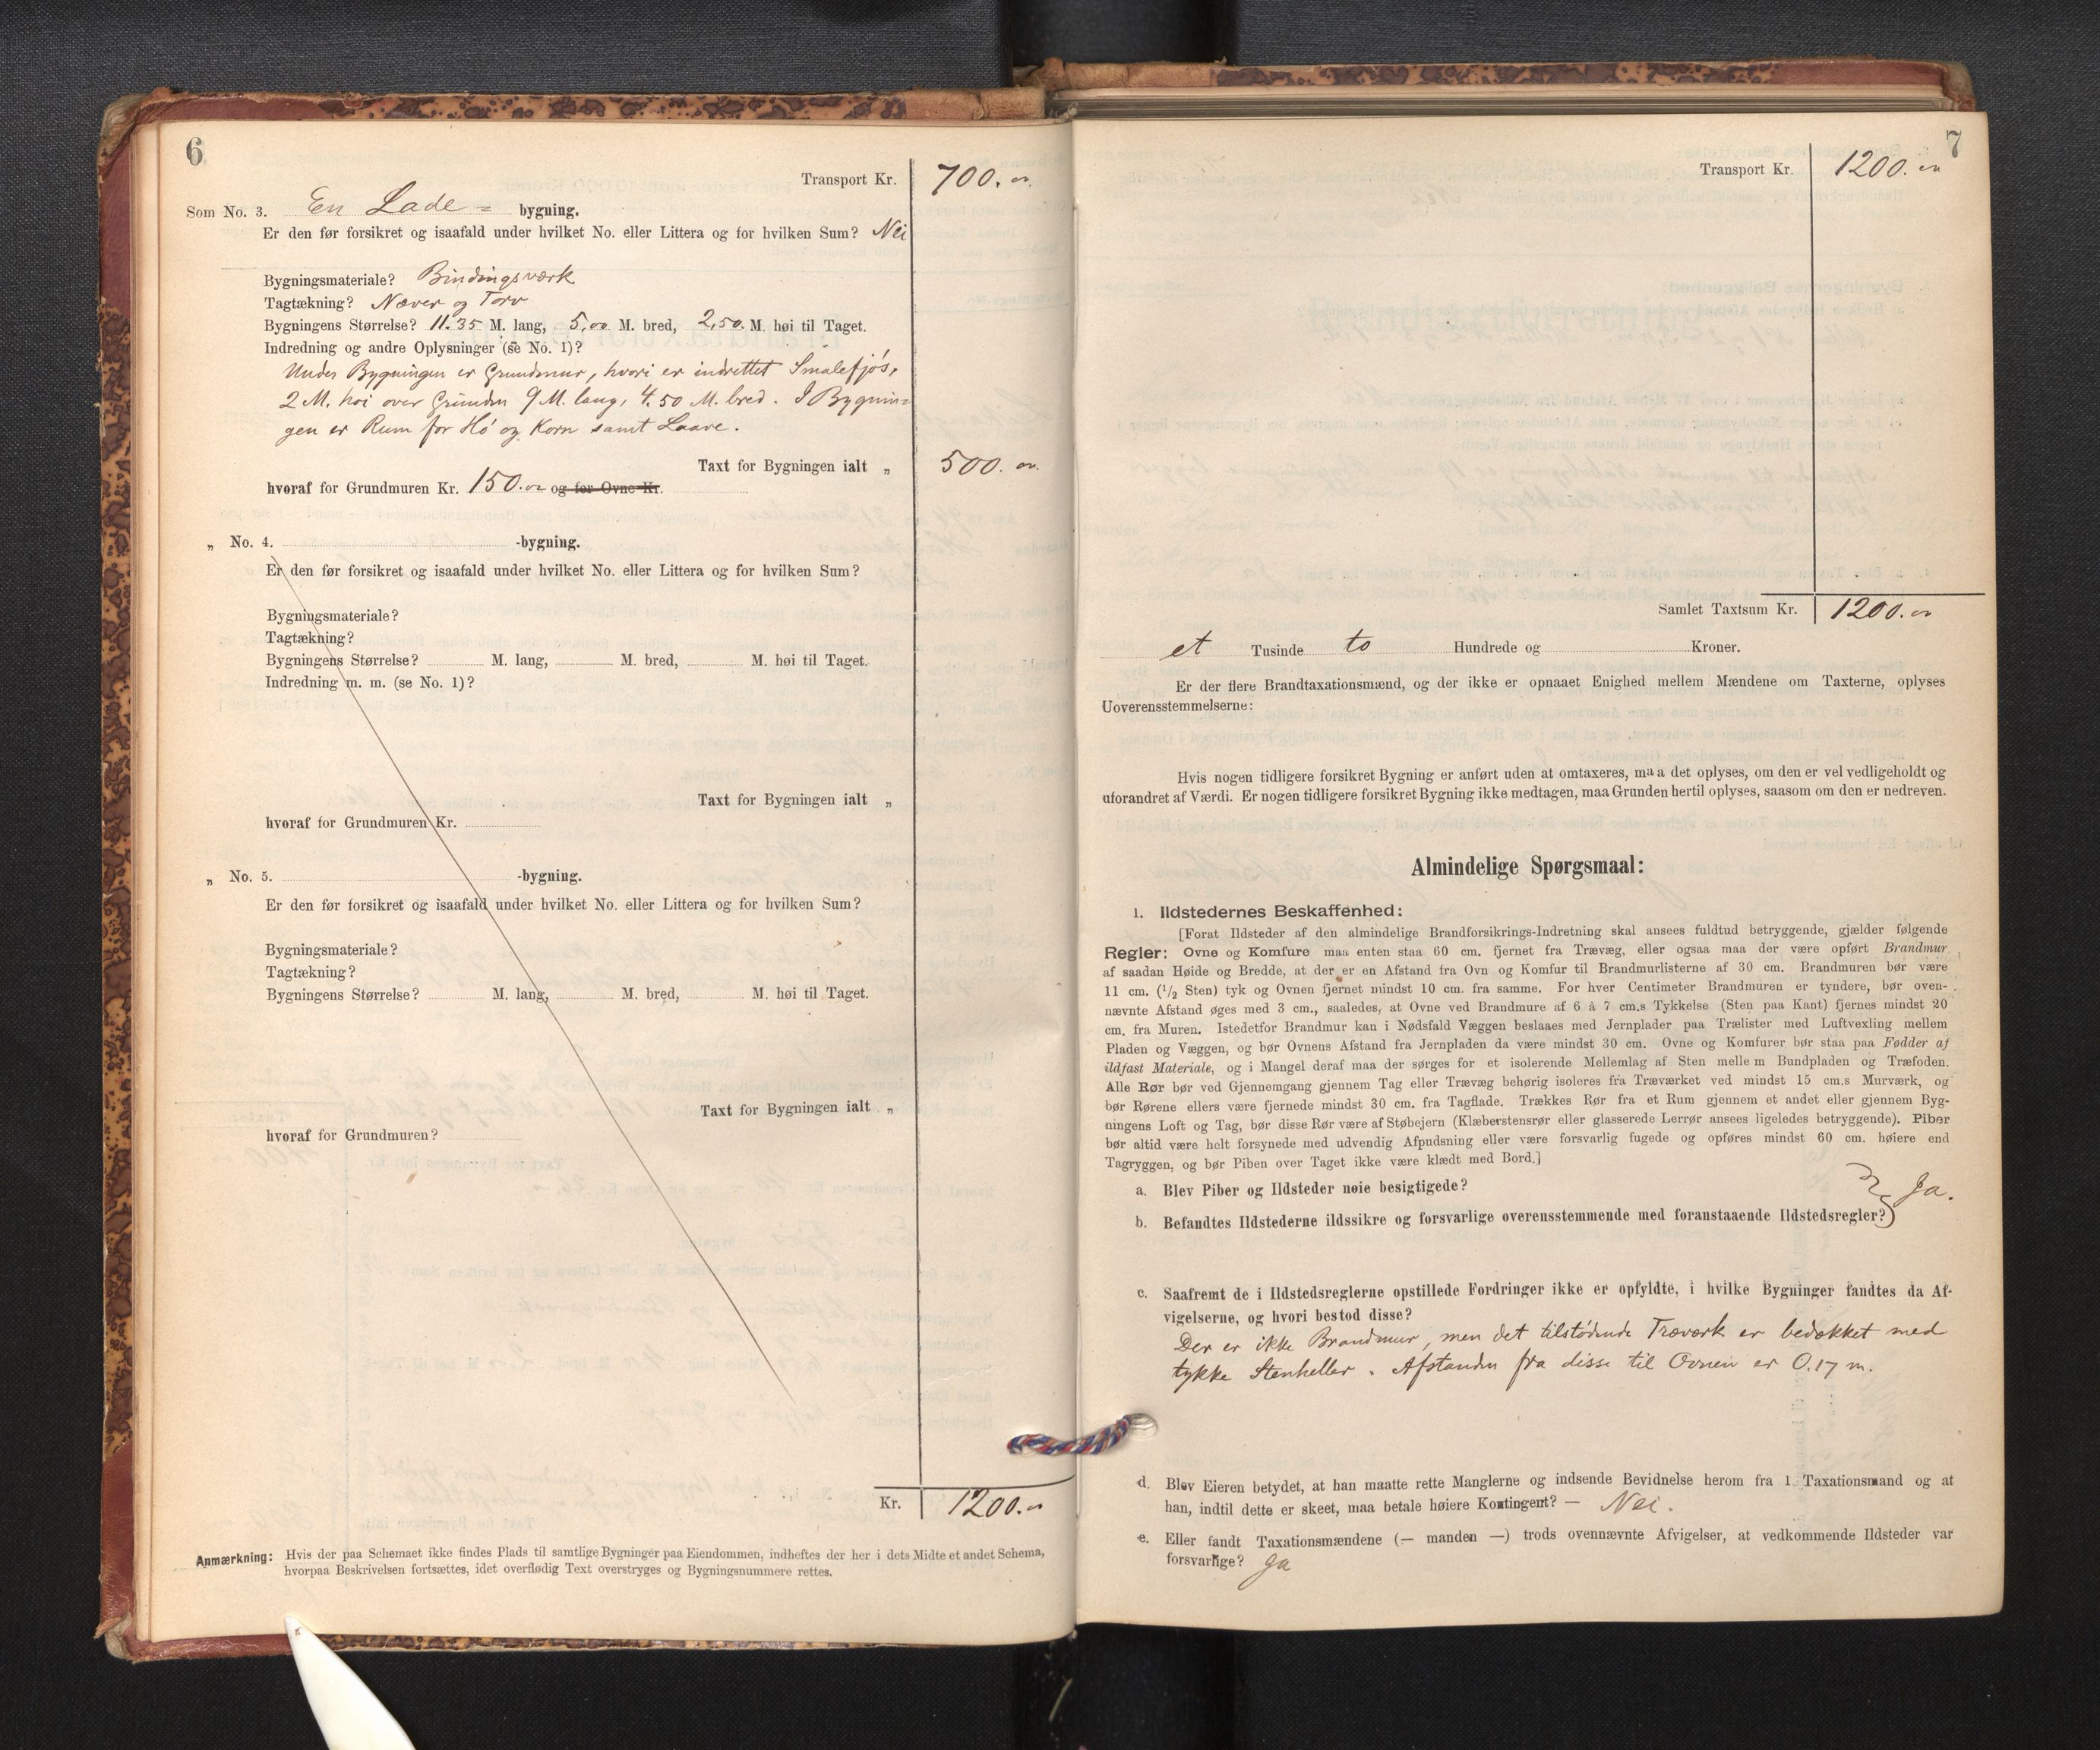 6
Transport Kr. 700.
Som No. 3. En Lade= bygning.
Er den før forsikret og isaafald under hvilket No. eller Littera og for hvilken Sum? Nei
Bygningsmateriale? Bindingsværk
Tagtækning? Næver og Torv
Bygningens Størrelse? 11.35 M. lang, 5,00 M. bred, 2,50 M. høi til Taget.
Indredning og andre Oplysninger (se No. 1)?
Under Bygningen er Grundmur, hvori er indrettet Smalefjös,
2 M. høi over Grunden 9 M. lang, 4.50 M. bred. I Bygnin=
gen er Rum for Hö og Korn samt Laave.
Taxt for Bygningen ialt „ 500.
hvoraf for Grundmuren Kr. 150. og for Ovne Kr.
„ No. 4. -bygning.
Er den før forsikret og isaafald under hvilket No. eller Littera og for hvilken Sum?
Bygningsmateriale?
Tagtækning?
Bygningens Størrelse? M. lang, M. bred, M. høi til Taget.
Indredning m. m. (se No. 1)?
Taxt for Bygningen ialt „
hvoraf for Grundmuren Kr.
„ No. 5. -bygning.
Er den før forsikret og isaafald under hvilket No. eller Littera og for hvilken Sum?
Bygningsmateriale?
Tagtækning?
Bygningens Størrelse? M. lang, M. bred, M. høi til Taget.
Taxt for Bygningen ialt „
hvoraf for Grundmuren?
Kr. 1200.
Anmærkning: Hvis der paa Schemaet ikke findes Plads til samtlige Bygninger paa Eiendommen, indheftes der her i dets Midte et andet Schema,
hvorpaa Beskrivelsen fortsættes, idet overflødig Text overstryges og Bygningsnummere rettes.
7
Transport Kr. 1200.
Samlet Taxtsum Kr. 1200.
et Tusinde to Hundrede og Kroner.
Er der flere Brandtaxationsmænd, og der ikke er opnaaet Enighed mellem Mændene om Taxterne, oplyses
Uoverensstemmelserne:
Hvis nogen tidligere forsikret Bygning er anført uden at omtaxeres, maa det oplyses, om den er vel vedligeholdt og
uforandret af Værdi. Er nogen tidligere forsikret Bygning ikke medtagen, maa Grunden hertil oplyses, saasom om den er nedreven.
Almindelige Spørgsmaal:
1. Ildstedernes Beskaffenhed:
[Forat Ildsteder af den almindelige Brandforsikrings-Indretning skal ansees fuldtud betryggende, gjælder følgende
Regler: Ovne og Komfure maa enten staa 60 cm. fjernet fra Trævæg, eller ogsaa maa der være opført Brandmur
af saadan Høide og Bredde, at der er en Afstand fra Ovn og Komfur til Brandmurlisterne af 30 cm. Brandmuren bør være
11 cm. (1/2 Sten) tyk og Ovnen fjernet mindst 10 cm. fra samme. For hver Centimeter Brandmuren er tyndere, bør oven-
nævnte Afstand øges med 3 cm., saaledes, at Ovne ved Brandmure af 6 à 7 cm.s Tykkelse (Sten paa Kant) fjernes mindst 20
cm. fra Muren. Istedetfor Brandmur kan i Nødsfald Væggen beslaaes med Jernplader paa Trælister med Luftvexling mellem
Pladen og Væggen, og bør Ovnens Afstand fra Jernpladen da være mindst 30 cm. Ovne og Komfurer bør staa paa Fødder af
ildfast Materiale, og i Mangel deraf maa der sørges for et isolerende Mellemlag af Sten mellem Bundpladen og Træfoden.
Alle Rør bør ved Gjennemgang gjennem Tag eller Trævæg behørig isoleres fra Træværket ved mindst 15 cm.s Murværk, og
bør Rørene ellers være fjernede mindst 30 cm. fra Tagflade. Trækkes Rør fra et Rum gjennem et andet eller gjennem Byg-
ningens Loft og Tag, bør disse Rør være af Støbejern (Klæberstensrør eller glasserede Lerrør ansees ligeledes betryggende). Piber
bør altid være helt forsynede med udvendig Afpudsning eller være forsvarlig fugede og opføres mindst 60 cm. høiere end
Tagryggen, og bør Piben over Taget ikke være klædt med Bord.]
a. Blev Piber og Ildsteder nøie besigtigede?
Ja.
b. Befandtes Ildstederne ildssikre og forsvarlige overensstemmende med foranstaaende Ildstedsregler?
c. Saafremt de i Ildstedsreglerne opstillede Fordringer ikke er opfyldte, i hvilke Bygninger fandtes da Af-
vigelserne, og hvori bestod disse?
Der er ikke Brandmur, men det tilstödende Træværk er bedækket med
tykke Stenheller. Afstanden fra disse til Ovnen er 0.17 m.
d. Blev Eieren betydet, at han maatte rette Manglerne og indsende Bevidnelse herom fra 1 Taxationsmand og at
han, indtil dette er skeet, maa betale høiere Kontingent? — Nei.
e. Eller fandt Taxationsmændene (— manden —) trods ovennævnte Afvigelser, at vedkommende Ildsteder var
forsvarlige? Ja